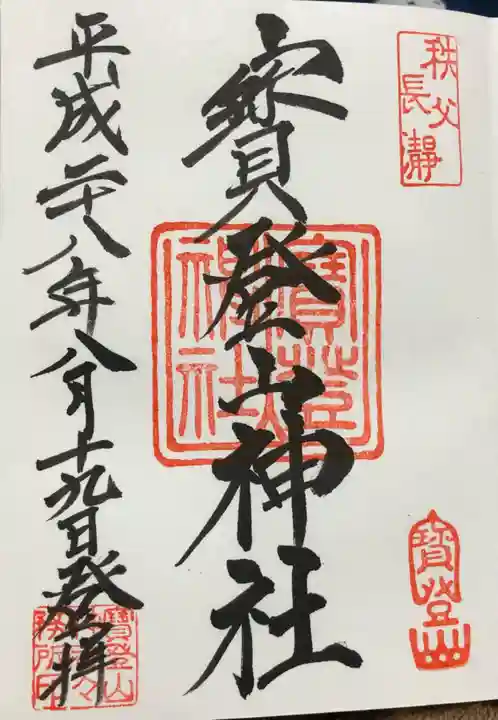 秩父
長瀞
寳登山神社
寳登山
神社
寳登山
平成二十八年八月十九日登拝
寳登山
務所印